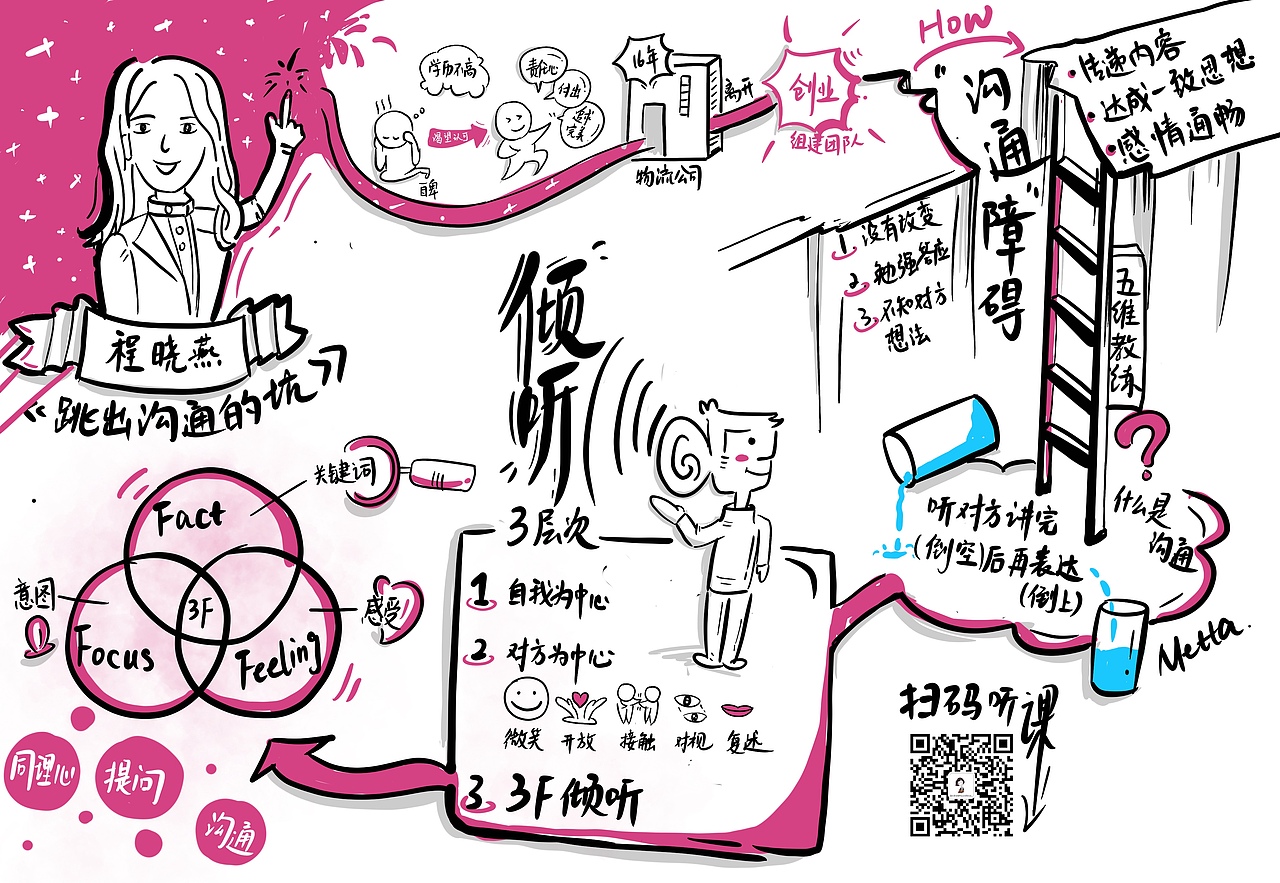 程晓燕
《跳出沟通的坑》
学历不高
自卑
渴望认可
责任心
付出
追求
完美
16年
物流公司
离开
创业
组建团队
How
“沟通”障碍
1. 没有改变
2. 勉强答应
3. 不知对方
想法
• 传递内容
• 达成一致思想
• 感情通畅
五维教练
?
什么是
沟通
听对方讲完
(倒空)后再表达
(倒上)
Metta.
倾听
3层次
1 自我为中心
2 对方为中心
微笑 开放 接触 对视 复述
3 3F倾听
Fact
关键词
3F
意图
Focus
感受
Feeling
同理心
提问
沟通
扫码听课